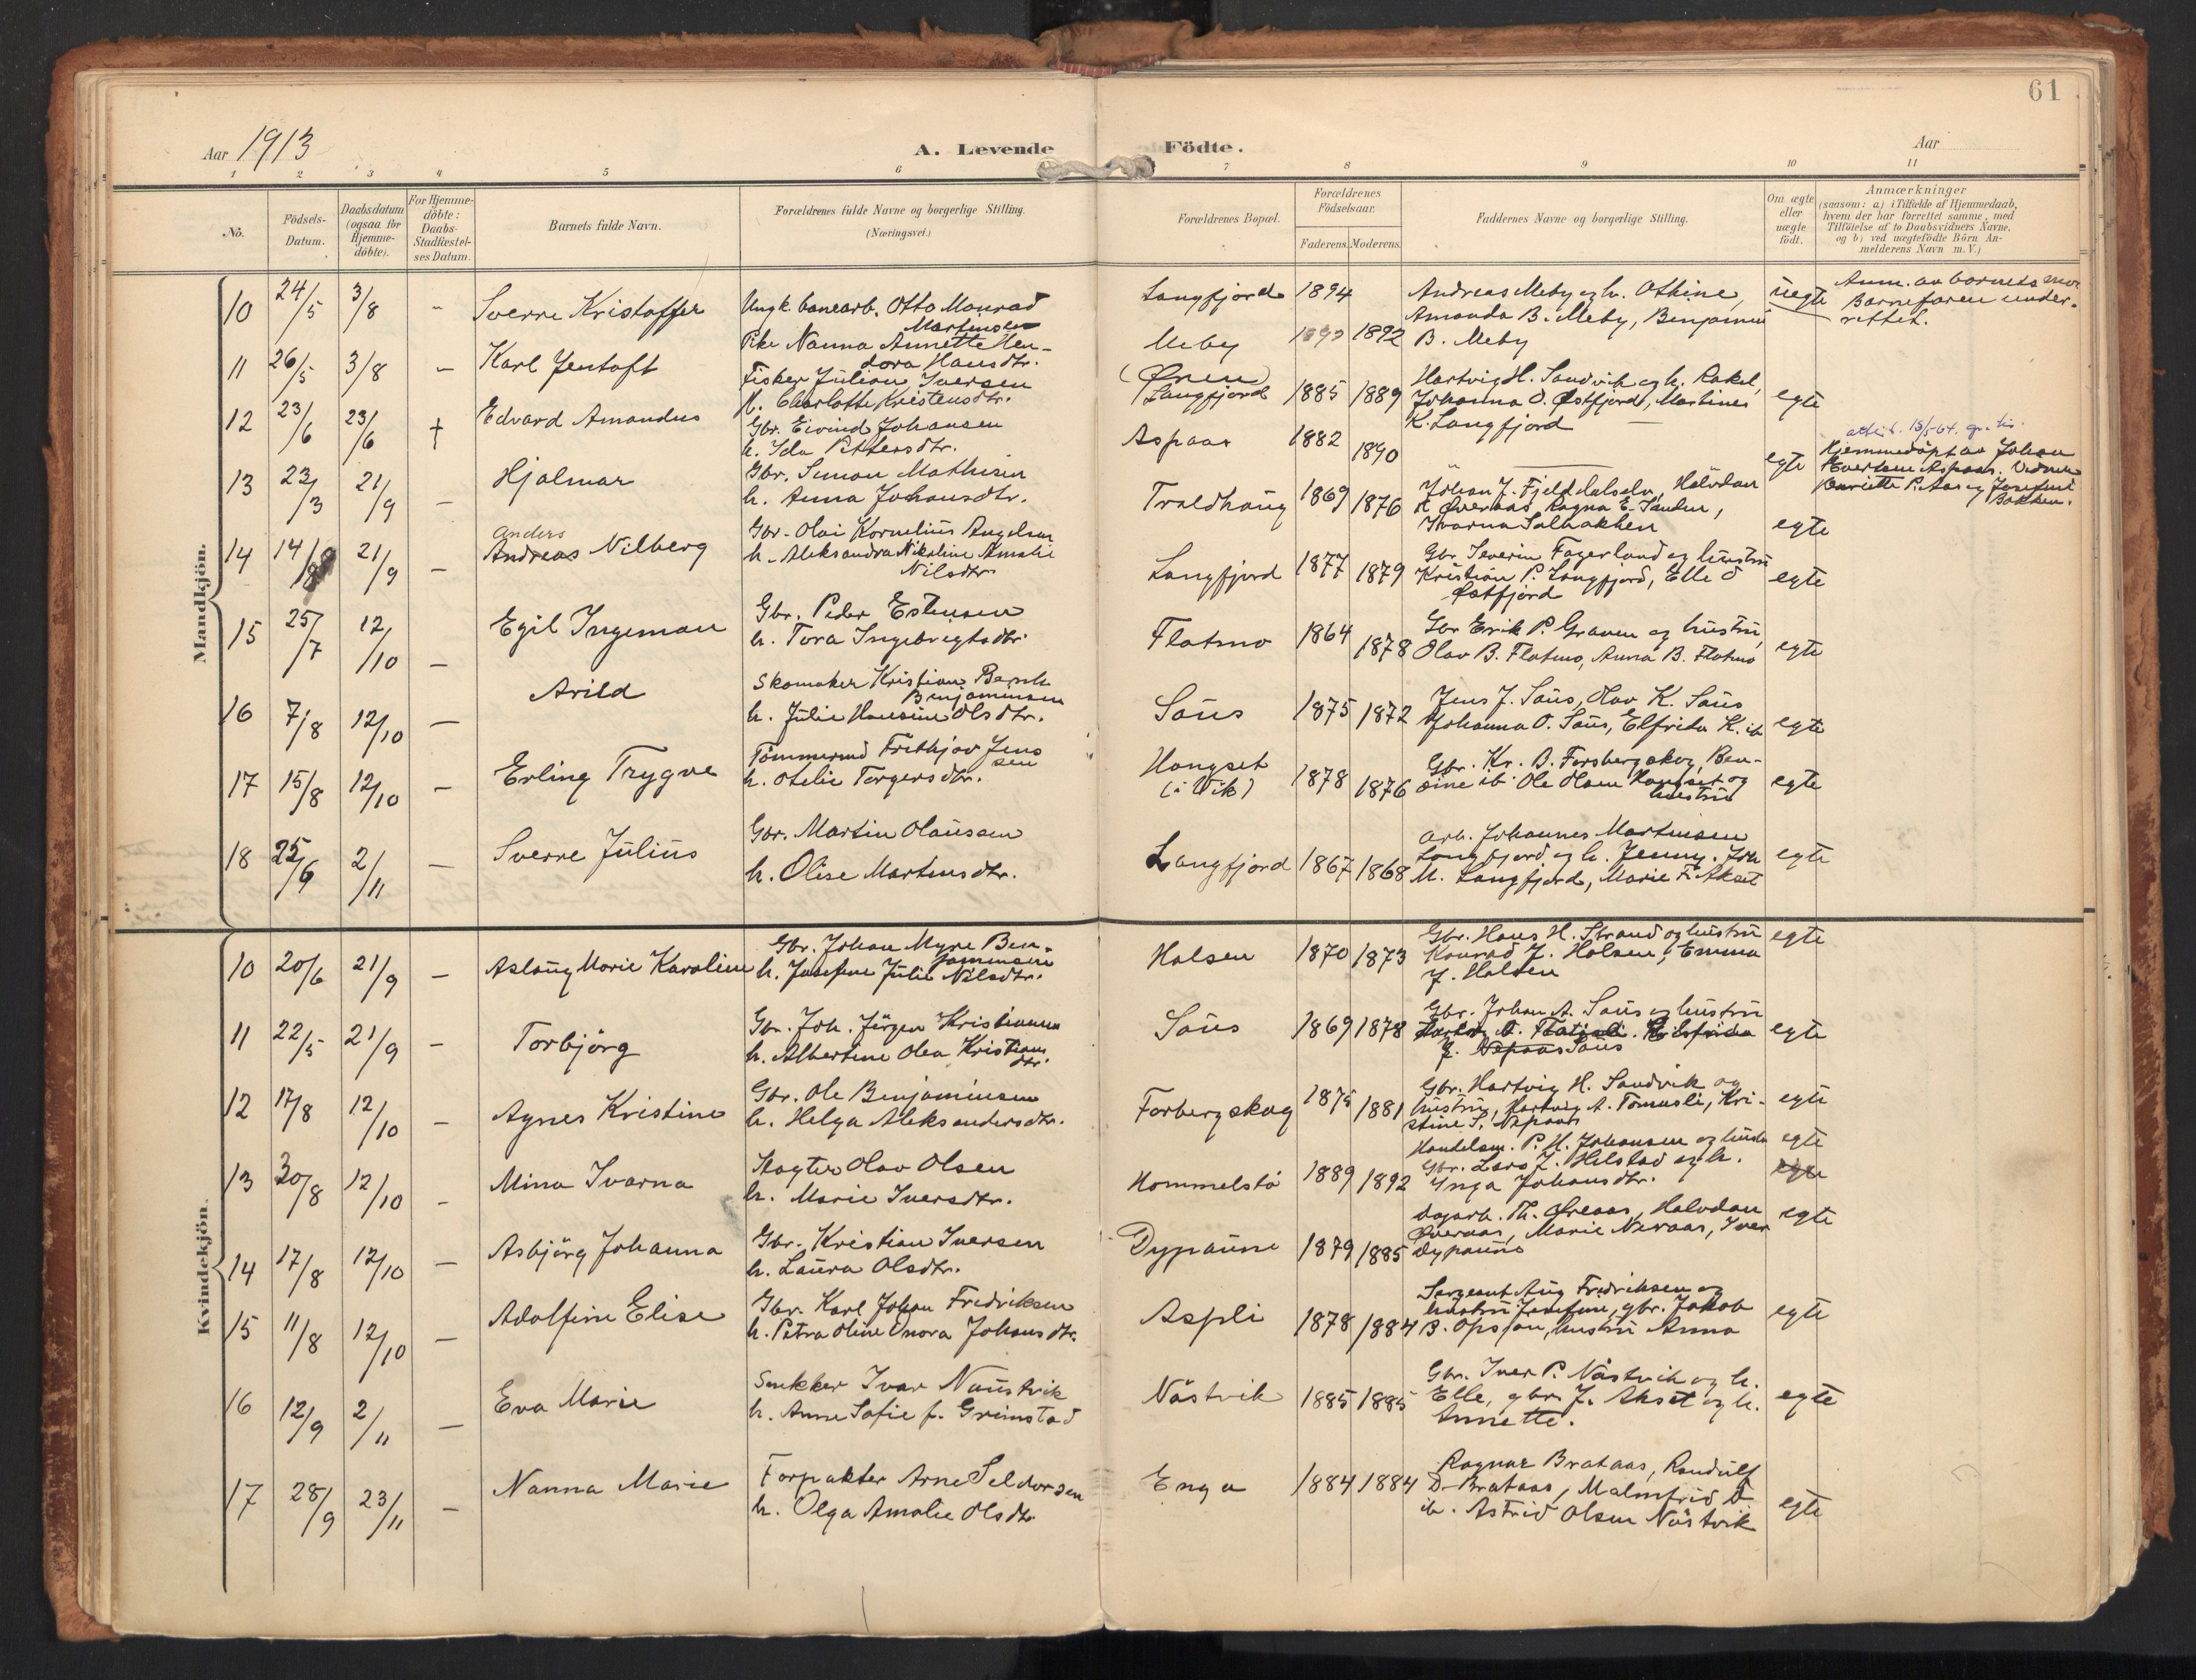 61
Aar 1913
A. Levende
Födte.
Aar
1 2 3 4 5 6 7 8 9 10 11
No.
Födsels-Datum.
Daabsdatum (ogsaa for Hjemme-döbte).
For Hjemme-döbte: Daabs-Stadfæstel-ses Datum.
Barnets fulde Navn.
Forældrenes fulde Navne og borgerlige Stilling.
(Næringsvei.)
Forældrenes Bopæl.
Forældrenes Födselsaar.
Faderens. Moderens.
Faddernes Navne og borgerlige Stilling.
Om ægte eller uægte födt.
Anmærkninger
(saasom: a) i Tilfælde af Hjemmedaab, hvem der har forrettet samme, med Tilföielse af to Daabsvidners Navne, og b) ved uægtefödte Börn An-melderens Navn m. V.)
Mandkjön.
10 24/5 3/8 - Sverre Kristoffer
Ungk. banearb. Otto Monrad
Martensen
Pike Nanna Annette Hen-
dora Hansdtr.
Langfjord 1894
Meby 1892
Andreas Meby og h. Othine,
Amanda B. Meby, Benjamin
B. Meby
uegte
Anm. av barnets mor
Barnefaren under-
rettet.
11 26/5 3/8 - Karl Jentoft
Fisker Julian Iversen
h. Charlotte Kristensdtr.
(Øren)
Langfjord 1885 1889
Hartvig H. Sandvik og h. Rakel,
Johanna O. Østfjord, Martines
K. Langfjord
egte
12 23/6 23/6 † Edvard Amandus
Gbr. Eivind Johansen
h. Ida Pettersdtr.
Aspaas 1882 1890
egte
Hjemmedöpt av Johan
Evertsen Aspaas.
13 23/3 21/9 - Hjalmar
Gbr. Simon Mathisen
h. Anna Johansdtr.
Traldhaug 1869 1876
egte
14 14/8 21/9 - Anders
Andreas Nilberg
Gbr. Olai Kornelius Angelsen
h. Aleksandra Nikoline Amalie
Nilsdtr.
Langfjord 1877 1879
Gbr Severin Fagerland og hustru
Kristian P. Langfjord, Elle O
Østfjord
egte
15 25/7 12/10 - Egil Ingeman
Gbr. Peder Estensen
h. Tora Ingebrigtsdtr.
Flatmo 1864 1878
Gbr Erik P. Graven og hustru,
Olav B. Flatmo, Anna B. Flatmo
egte
16 7/8 12/10 - Arild
Skomaker Kristian Bernh
Benjaminsen
h. Julie Hansine Olsdtr.
Saus 1875 1872
Jens J. Saus, Olav K. Saus
Johanna O. Saus, Elfrida K. ib
egte
17 15/8 12/10 - Erling Trygve
Tömmermd Frithjov Jens
sen
h. Otelie Torgersdtr.
Hongset
(i Vik) 1878 1876
Gbr. Kr. B. Forsbergskog, Ben-
sine ib Ole Olsen Hongset og
hustru
egte
18 25/6 2/11 - Sverre Julius
Gbr. Martin Olausen
h. Olise Martensdtr.
Langfjord 1867 1868
Arb. Johannes Martinsen
Langfjord og h. Jenny. Joh
M. Langfjord, Marie F. Akset
egte
Kvindekjön.
10 20/6 21/9 - Aslaug Marie Karoline
Gbr. Johan Myre Ben-
jaminsen
h. Josefine Julie Nilsdtr.
Halsen 1870 1873
Gbr. Hans H. Strand og hustru
Konrad J. Halsen, Emma
J. Halsen
egte
11 22/5 21/9 - Torbjörg
Gbr. Joh. Jörgen Kristiansen
h. Albertine Olea Kristians
dtr.
Saus 1869 1878
Gbr. Johan A. Saus og hustru
egte
12 17/8 12/10 - Agnes Kristine
Gbr. Ole Benjaminsen
h. Helga Aleksandersdtr.
Forbergskog 1875 1881
Gbr. Hartvig H. Sandvik og
hustru, Hartvig A. Tömmsli, Kri-
stine S. Nepaas
egte
13 30/8 12/10 - Mina Ivarna
Slagter Olav Olsen
h. Marie Iversdtr.
Hommelstö 1889 1892
Handelsm. P. H. Johansen og hustru
Gbr. Lars J. Hilstad og h.
Inga Johansdtr.
egte
egte
14 17/8 12/10 - Asbjörg Johanna
Gbr. Kristian Iversen
h. Laura Olsdtr.
Dypaune 1879 1885
Dagarb. Th. Øveraas, Halvdan
Øveraas, Marie Neraas, Iver
Dypaune
egte
15 11/8 12/10 - Adolfine Elise
Gbr. Karl Johan Fredriksen
h. Petra Oline Enora Johansdtr.
Aspli 1878 1884
Sergeant Aug Fredriksen og
hustru Josefine, gbr. Jakob
B. Opsjön, hustru Anna
egte
16 12/9 2/11 - Eva Marie
Snekker Ivar Naustvik
h. Anne Sofie f. Grimstad
Nästvik 1885 1885
Gbr. Iver P. Nästvik og h.
Elle, gbr. J. Akset og h.
Annette.
egte
17 28/9 23/11 - Nanna Marie
Forpakter Arne Seldorsen
h. Olga Amalie Olsdtr
Enga 1884 1884
Ragnar Brataas, Randulf
D. Brataas, Malmfrid D
ib. Astrid Olsen Nästvik
egte